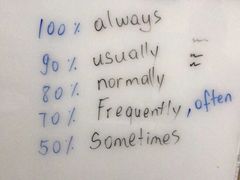 100% always
90% usually
80% normally
70% Frequently, often
50% Sometimes